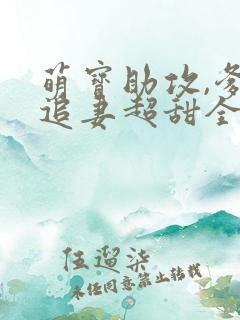 萌寶助攻,爹
追妻超甜全
伍遛柒
未经同意禁止转载